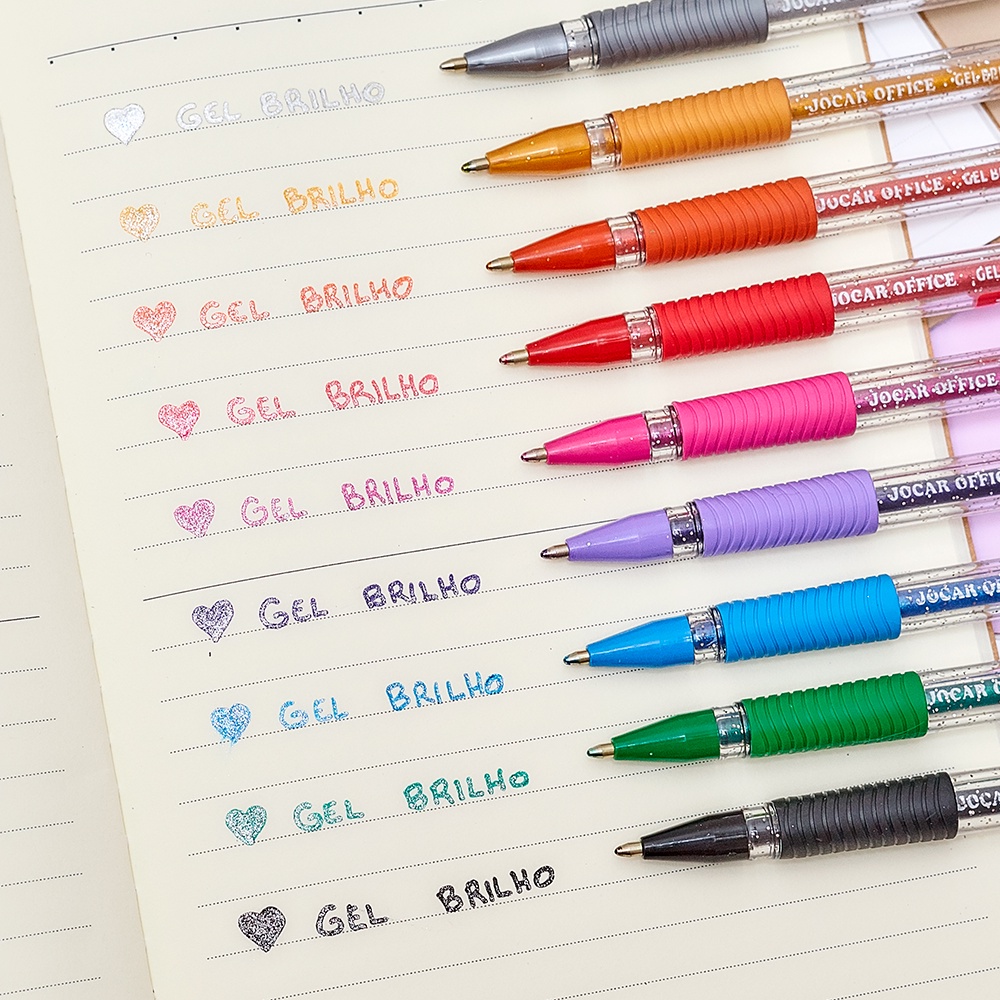 GEL BRILHO
GEL BRILHO
JOCAR OFFICE
GEL BRILHO
JOCAR OFFICE
GEL BRILHO
JOCAR OFFICE · GEL
GEL BRILHO
JOCAR OFFICE
GEL BRILHO
JOCAR
GEL BRILHO
JOCAR
GEL BRILHO
JOCAR
GEL BRILHO